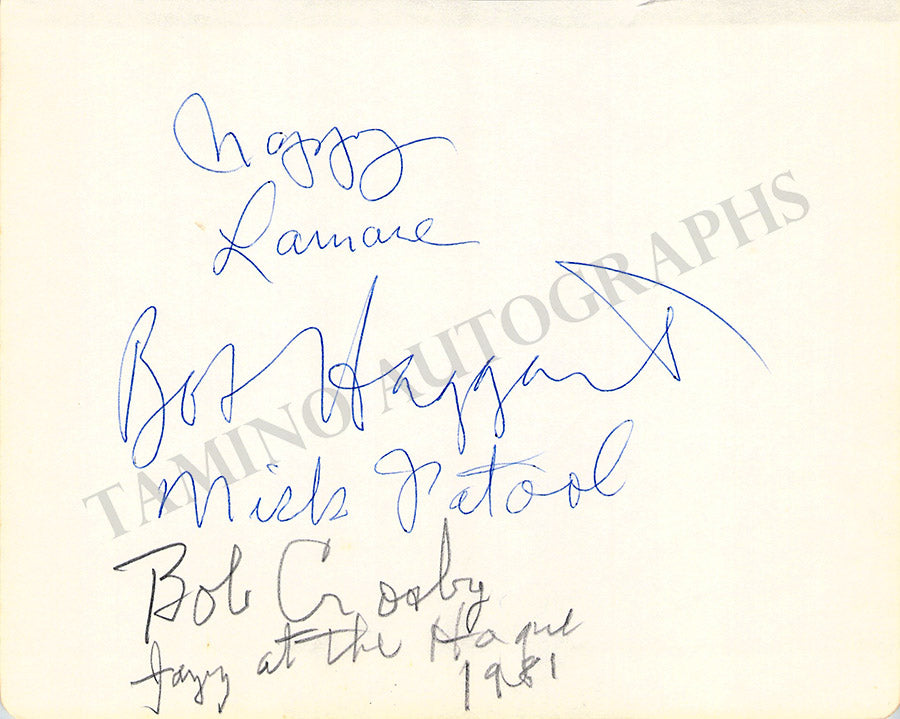 Nappy
Lamare
Bob Haggart
Nick Fatool
Bob Crosby
Jazz at the Hague
1981
TAMINO AUTOGRAPHS